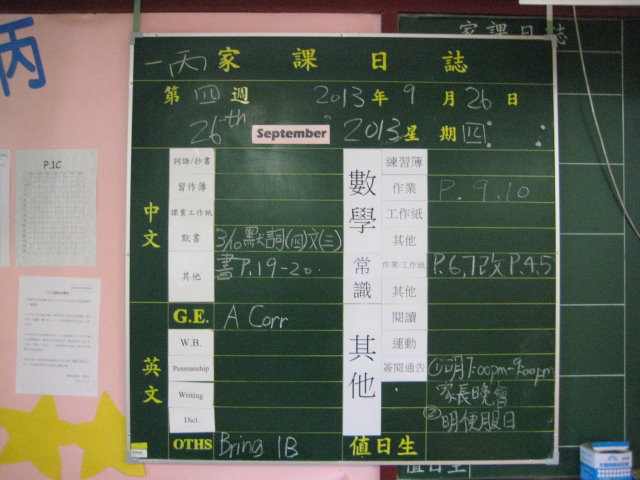 丙
家課日誌
一丙 家課日誌
第四週 2013年9月26日
26th September 2013 星期四
P.1C
中文
詞語/抄書
習作簿
課業工作紙
默書 3/10默詞(四)文(三)
其他 書P.19-20.
英文
G.E. A Corr
W.B.
Penmanship
Writing
Dict.
OTHS Bring 1B
數學
練習簿
作業 P.9,10
工作紙
其他
常識
作業/工作紙 P.6,7改P.4,5
其他
其他
閱讀
運動
簽閱通告 ①明7:00pm-9:00pm
家長晚會
②明便服日
值日生
值日生